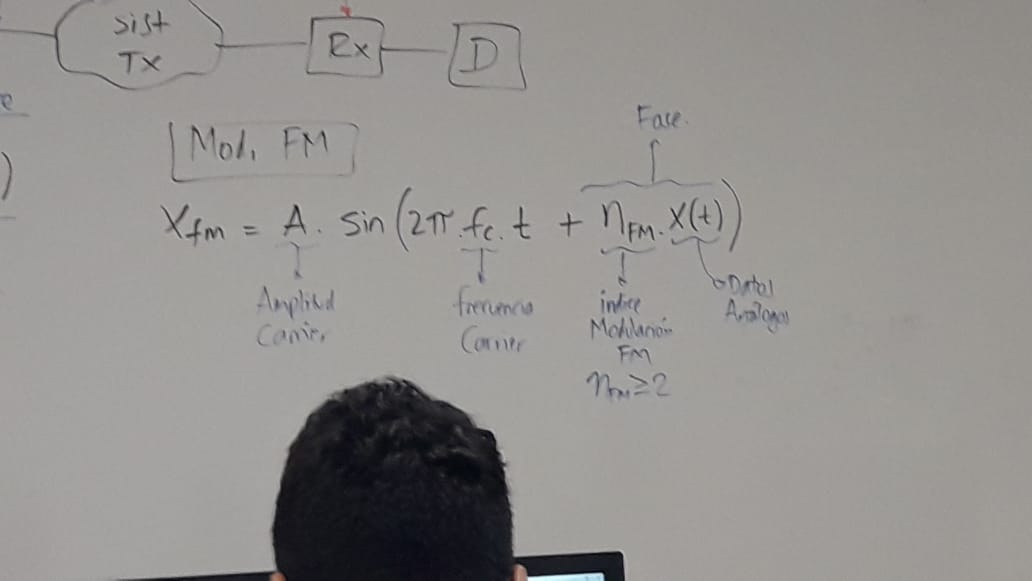 sist
TX
Rx
D
e
)
Mod, FM
Fase.
Xfm = A. sin (2π.fc.t + ηFM.X(t))
Amplitud
Carrier
frecuencia
Carrier
indice
Modulación
FM
ηFM≥2
Datos
Analogos